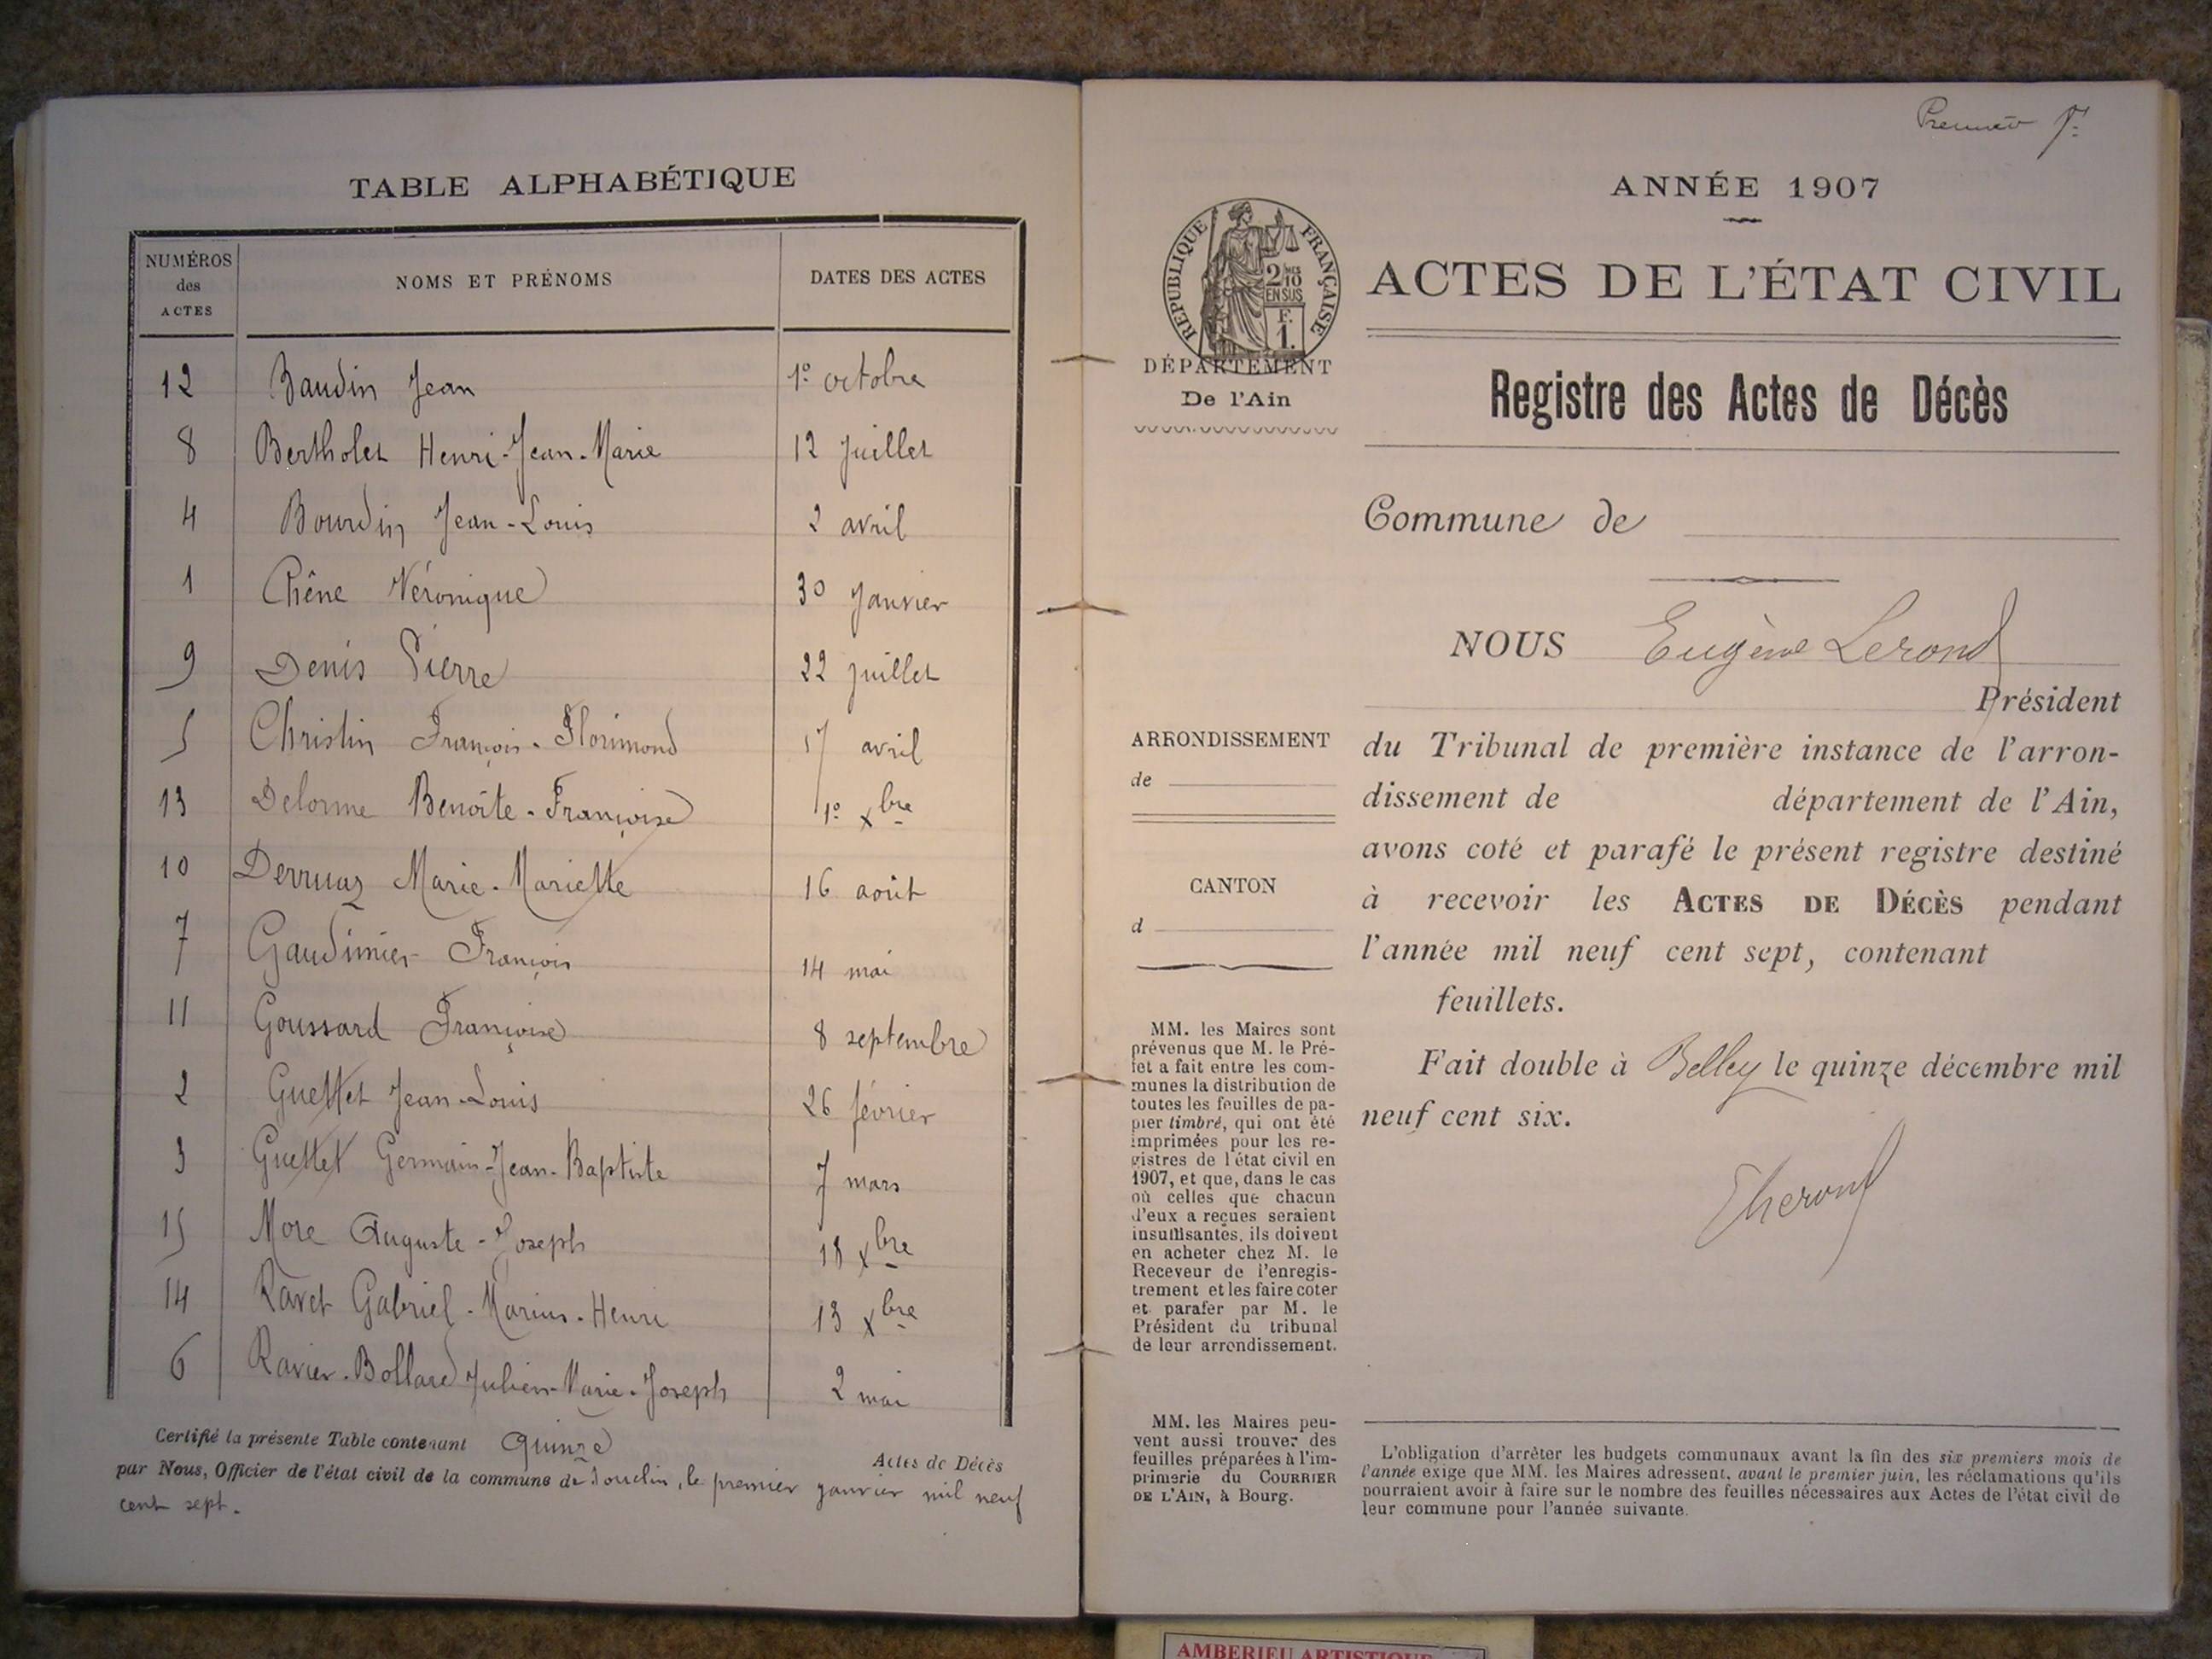 TABLE ALPHABÉTIQUE
NUMÉROS
des
ACTES
NOMS ET PRÉNOMS
DATES DES ACTES
12 Baudin Jean 1º octobre
8 Bertholet Henri-Jean-Marie 12 Juillet
4 Bourdin Jean-Louis 2 avril
1 Chêne Véronique 30 Janvier
9 Denis Pierre 22 juillet
5 Christin François-Florimond 17 avril
13 Delorme Benoîte-Françoise 1º xbre
10 Derruaz Marie-Mariette 16 août
7 Gaudimier François 14 mai
11 Goussard Françoise 8 septembre
2 Guettet Jean-Louis 26 février
3 Guettet Germain-Jean-Baptiste 7 mars
15 More Auguste-Joseph 18 xbre
14 Ravet Gabriel-Marius-Henri 13 xbre
6 Ravier-Bollard Julien-Marie-Joseph 2 mai
Certifié la présente Table contenant Quinze Actes de Décès
par Nous, Officier de l'état civil de la commune de Souclin, le premier janvier mil neuf
cent sept.
Premier
ANNÉE 1907
RÉPUBLIQUE FRANÇAISE
2 MES
10
EN SUS
F.
1.
ACTES DE L'ÉTAT CIVIL
DÉPARTEMENT
De l'Ain
Registre des Actes de Décès
Commune de
NOUS Eugène Lerond
Président
ARRONDISSEMENT
de
du Tribunal de première instance de l'arron-
dissement de département de l'Ain,
avons coté et parafé le présent registre destiné
CANTON
d
à recevoir les ACTES DE DÉCÈS pendant
l'année mil neuf cent sept, contenant
feuillets.
Fait double à Belley le quinze décembre mil
neuf cent six.
MM. les Maires sont
prévenus que M. le Pré-
fet a fait entre les com-
munes la distribution de
toutes les feuilles de pa-
pier timbré, qui ont été
imprimées pour les re-
gistres de l'état civil en
1907, et que, dans le cas
où celles que chacun
d'eux a reçues seraient
insuffisantes, ils doivent
en acheter chez M. le
Receveur de l'enregis-
trement et les faire coter
et parafer par M. le
Président du tribunal
de leur arrondissement.
MM. les Maires peu-
vent aussi trouver des
feuilles préparées à l'im-
primerie du COURRIER
DE L'AIN, à Bourg.
L'obligation d'arrêter les budgets communaux avant la fin des six premiers mois de
l'année exige que MM. les Maires adressent, avant le premier juin, les réclamations qu'ils
pourraient avoir à faire sur le nombre des feuilles nécessaires aux Actes de l'état civil de
leur commune pour l'année suivante.
AMBERIEU ARTISTIQUE